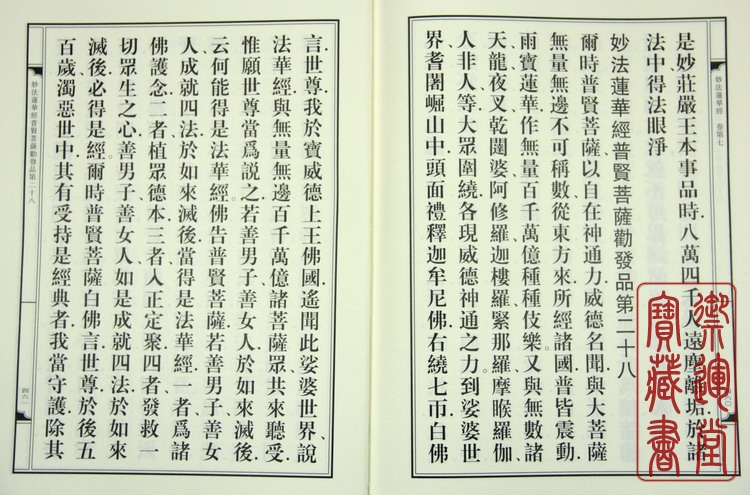 妙法蓮華經 卷第七
是妙莊嚴王本事品時八萬四千人遠塵離垢於諸
法中得法眼淨
妙法蓮華經普賢菩薩勸發品第二十八
爾時普賢菩薩以自在神通力威德名聞與大菩薩
無量無邊不可稱數從東方來所經諸國普皆震動
雨寶蓮華作無量百千萬億種種伎樂又與無數諸
天龍夜叉乾闥婆阿修羅迦樓羅緊那羅摩睺羅伽
人非人等大眾圍繞各現威德神通之力到娑婆世
界耆闍崛山中頭面禮釋迦牟尼佛右繞七帀白佛
言世尊我於寶威德上王佛國遙聞此娑婆世界說
法華經與無量無邊百千萬億諸菩薩眾共來聽受
惟願世尊當爲說之若善男子善女人於如來滅後
云何能得是法華經佛告普賢菩薩若善男子善女
人成就四法於如來滅後當得是法華經一者爲諸
佛護念二者植眾德本三者入正定聚四者發救一
切眾生之心善男子善女人如是成就四法於如來
滅後必得是經爾時普賢菩薩白佛言世尊於後五
百歲濁惡世中其有受持是經典者我當守護除其
妙法蓮華經普賢菩薩勸發品第二十八
四九一
御運堂
寶藏書